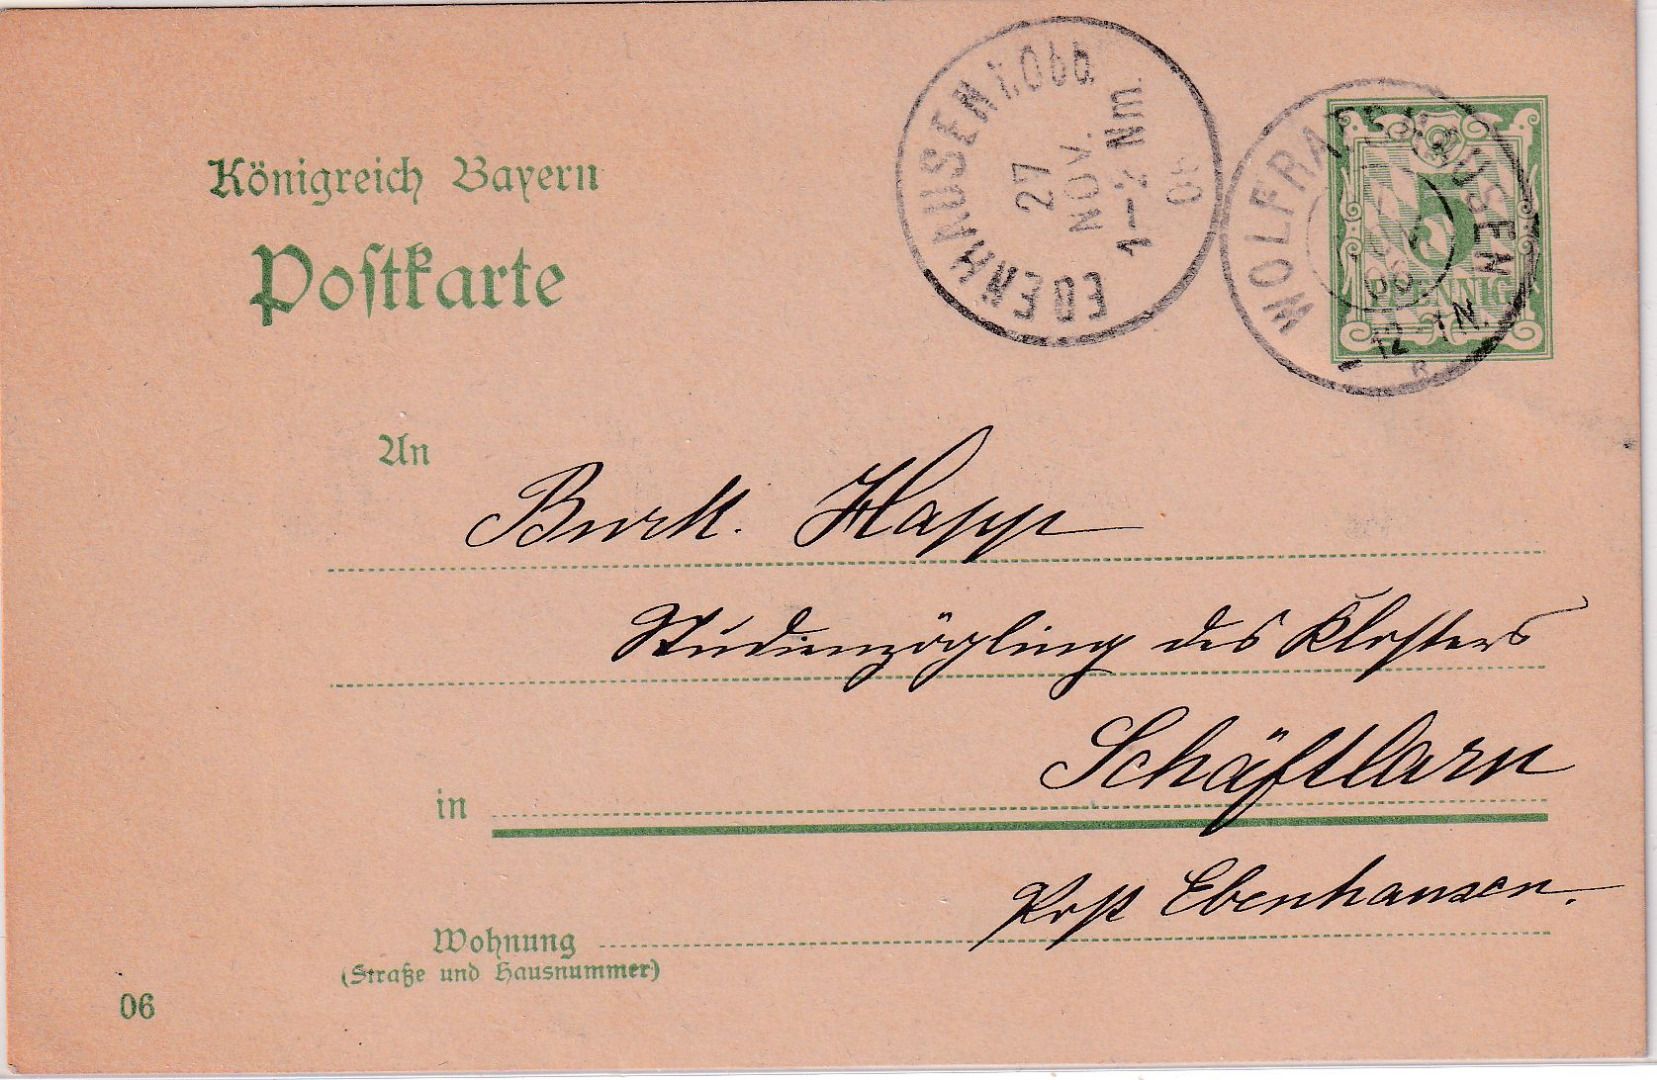 Königreich Bayern
Postkarte
EBENHAUSEN i. Obb.
27
NOV.
1-2 Nm.
06
WOLFRATSHAUSEN
12-1 N.
5
PFENNIG
An
Burk. Happ
Studienzögling des Klosters
in Schäftlarn
Post Ebenhausen.
Wohnung
(Straße und Hausnummer)
06